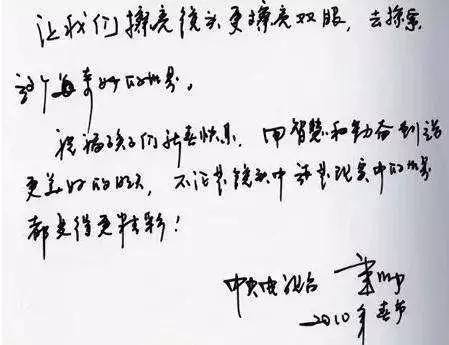 让我们擦亮镜头更擦亮双眼,去探索
这个奇妙的世界。
祝福孩子们新春快乐,用智慧和勤奋创造
更美好的明天,不论是镜头中还是现实中的世界
都变得更精彩!
中央电视台
2010年春节